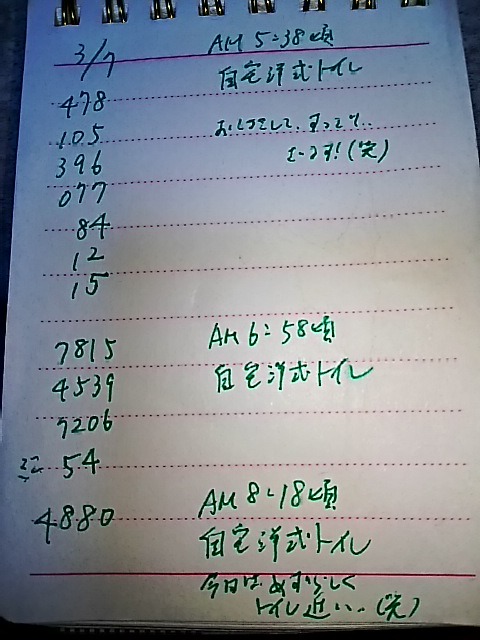 3/7 AM 5:38頃
自宅洋式トイレ
478
105
396 ます!(笑)
077
84
12
15
7815 AM 6:58頃
4539 自宅洋式トイレ
7206
ミニ 54
4880 AM 8:18頃
自宅洋式トイレ
今日はめずらしく
トイレ近い..(笑)